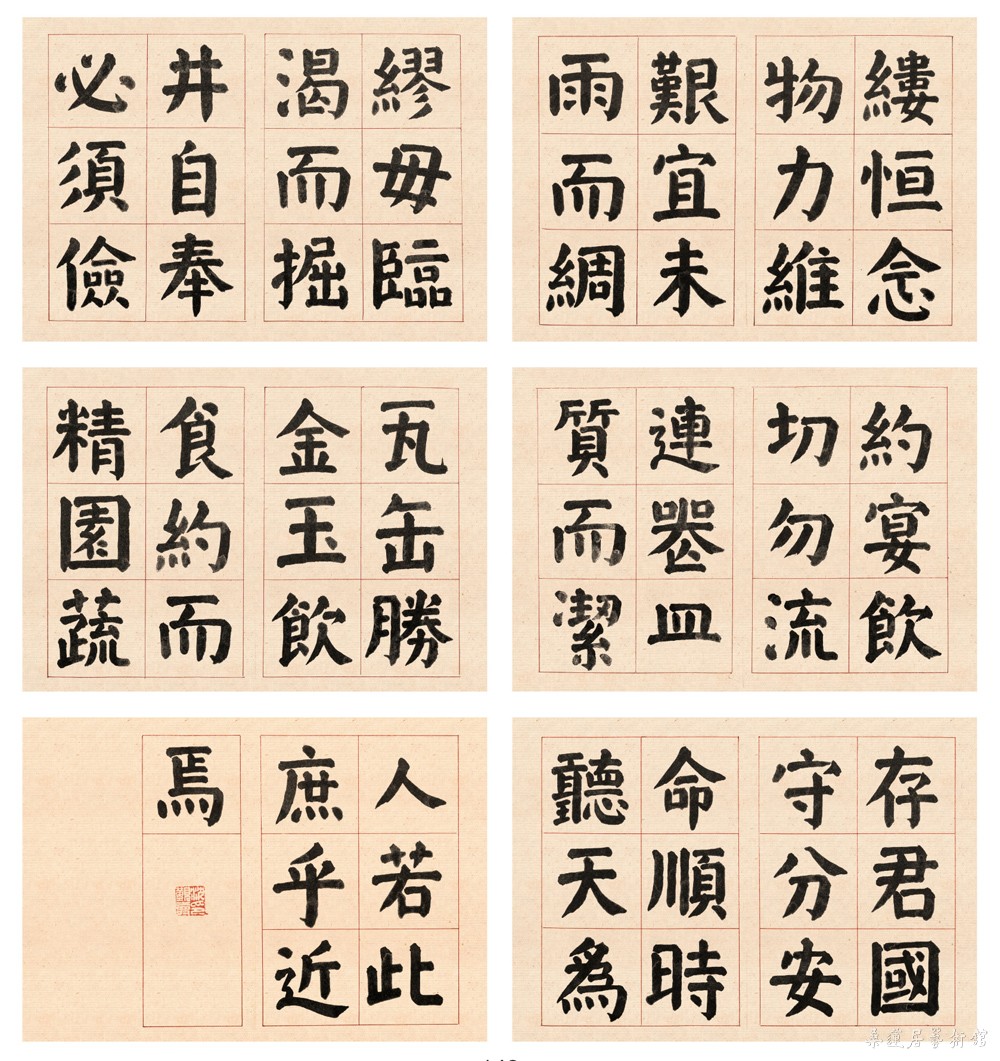 縷恒念
物力維
艱宜未
雨而綢
繆毋臨
渴而掘
井自奉
必須儉
約宴飲
切勿流
連器皿
質而潔
瓦缶勝
金玉飲
食約而
精園蔬
存君國
守分安
命順時
聽天爲
人若此
庶乎近
焉
桑蓮居藝術館